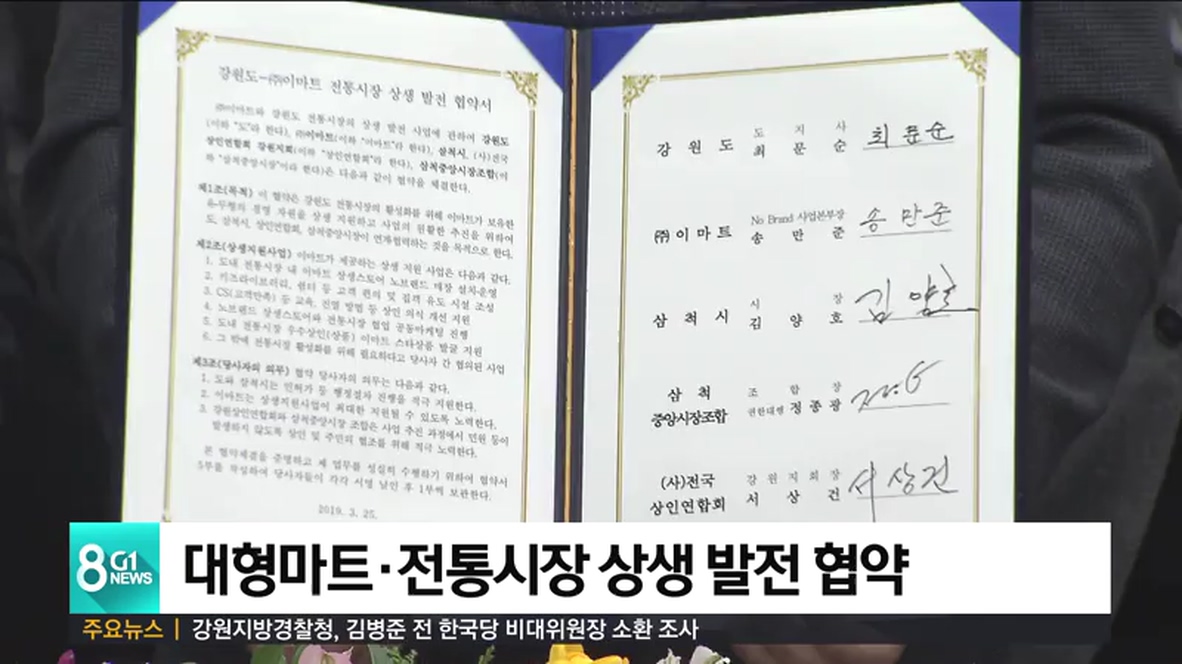 강원도-㈜이마트 전통시장 상생 발전 협약서
㈜이마트와 강원도 전통시장의 상생 발전 사업에 관하여 강원도
(이하 "도"라 한다), ㈜이마트(이하 "이마트"라 한다), 삼척시, (사)전국
상인연합회 강원지회(이하 "상인연합회"라 한다), 삼척중앙시장조합(이
하 "삼척중앙시장"이라 한다)은 다음과 같이 협약을 체결한다.
제1조(목적) 이 협약은 강원도 전통시장의 활성화를 위해 이마트가 보유한
유·무형의 경영 자원을 상생 지원하고 사업의 원활한 추진을 위하여
도, 삼척시, 상인연합회, 삼척중앙시장이 연계협력하는 것을 목적으로 한다.
제2조(상생지원사업) 이마트가 제공하는 상생 지원 사업은 다음과 같다.
1. 도내 전통시장 내 이마트 상생스토어 노브랜드 매장 설치·운영
2. 키즈라이브러리, 쉼터 등 고객 편의 및 집객 유도 시설 조성
3. CS(고객만족) 등 교육, 진열 방법 등 상인 의식 개선 지원
4. 노브랜드 상생스토어와 전통시장 협업 공동마케팅 진행
5. 도내 전통시장 우수상인(상품) 이마트 스타상품 발굴 지원
6. 그 밖에 전통시장 활성화를 위해 필요하다고 당사자 간 협의된 사업
제3조(당사자의 의무) 협약 당사자의 의무는 다음과 같다.
1. 도와 삼척시는 인허가 등 행정절차 진행을 적극 지원한다.
2. 이마트는 상생지원사업이 최대한 지원될 수 있도록 노력한다.
3. 강원상인연합회와 삼척중앙시장 조합은 사업 추진 과정에서 민원 등이
발생하지 않도록 상인 및 주민의 협조를 위해 적극 노력한다.
본 협약체결을 증명하고 제 업무를 성실히 수행하기 위하여 협약서
5부를 작성하여 당사자들이 각각 서명 날인 후 1부씩 보관한다.
2019. 3. 25.
강 원 도 도 지 사 최 문 순 최문순
㈜이마트 No Brand 사업본부장 송 만 준 송만준
삼 척 시 시 장 김 양 호 김양호
삼 척 중앙시장조합 조 합 장 권한대행 정 종 광
(사)전국 상인연합회 강 원 지 회 장 서 상 건 서상건
8 G1 NEWS
대형마트·전통시장 상생 발전 협약
주요뉴스 | 강원지방경찰청, 김병준 전 한국당 비대위원장 소환 조사